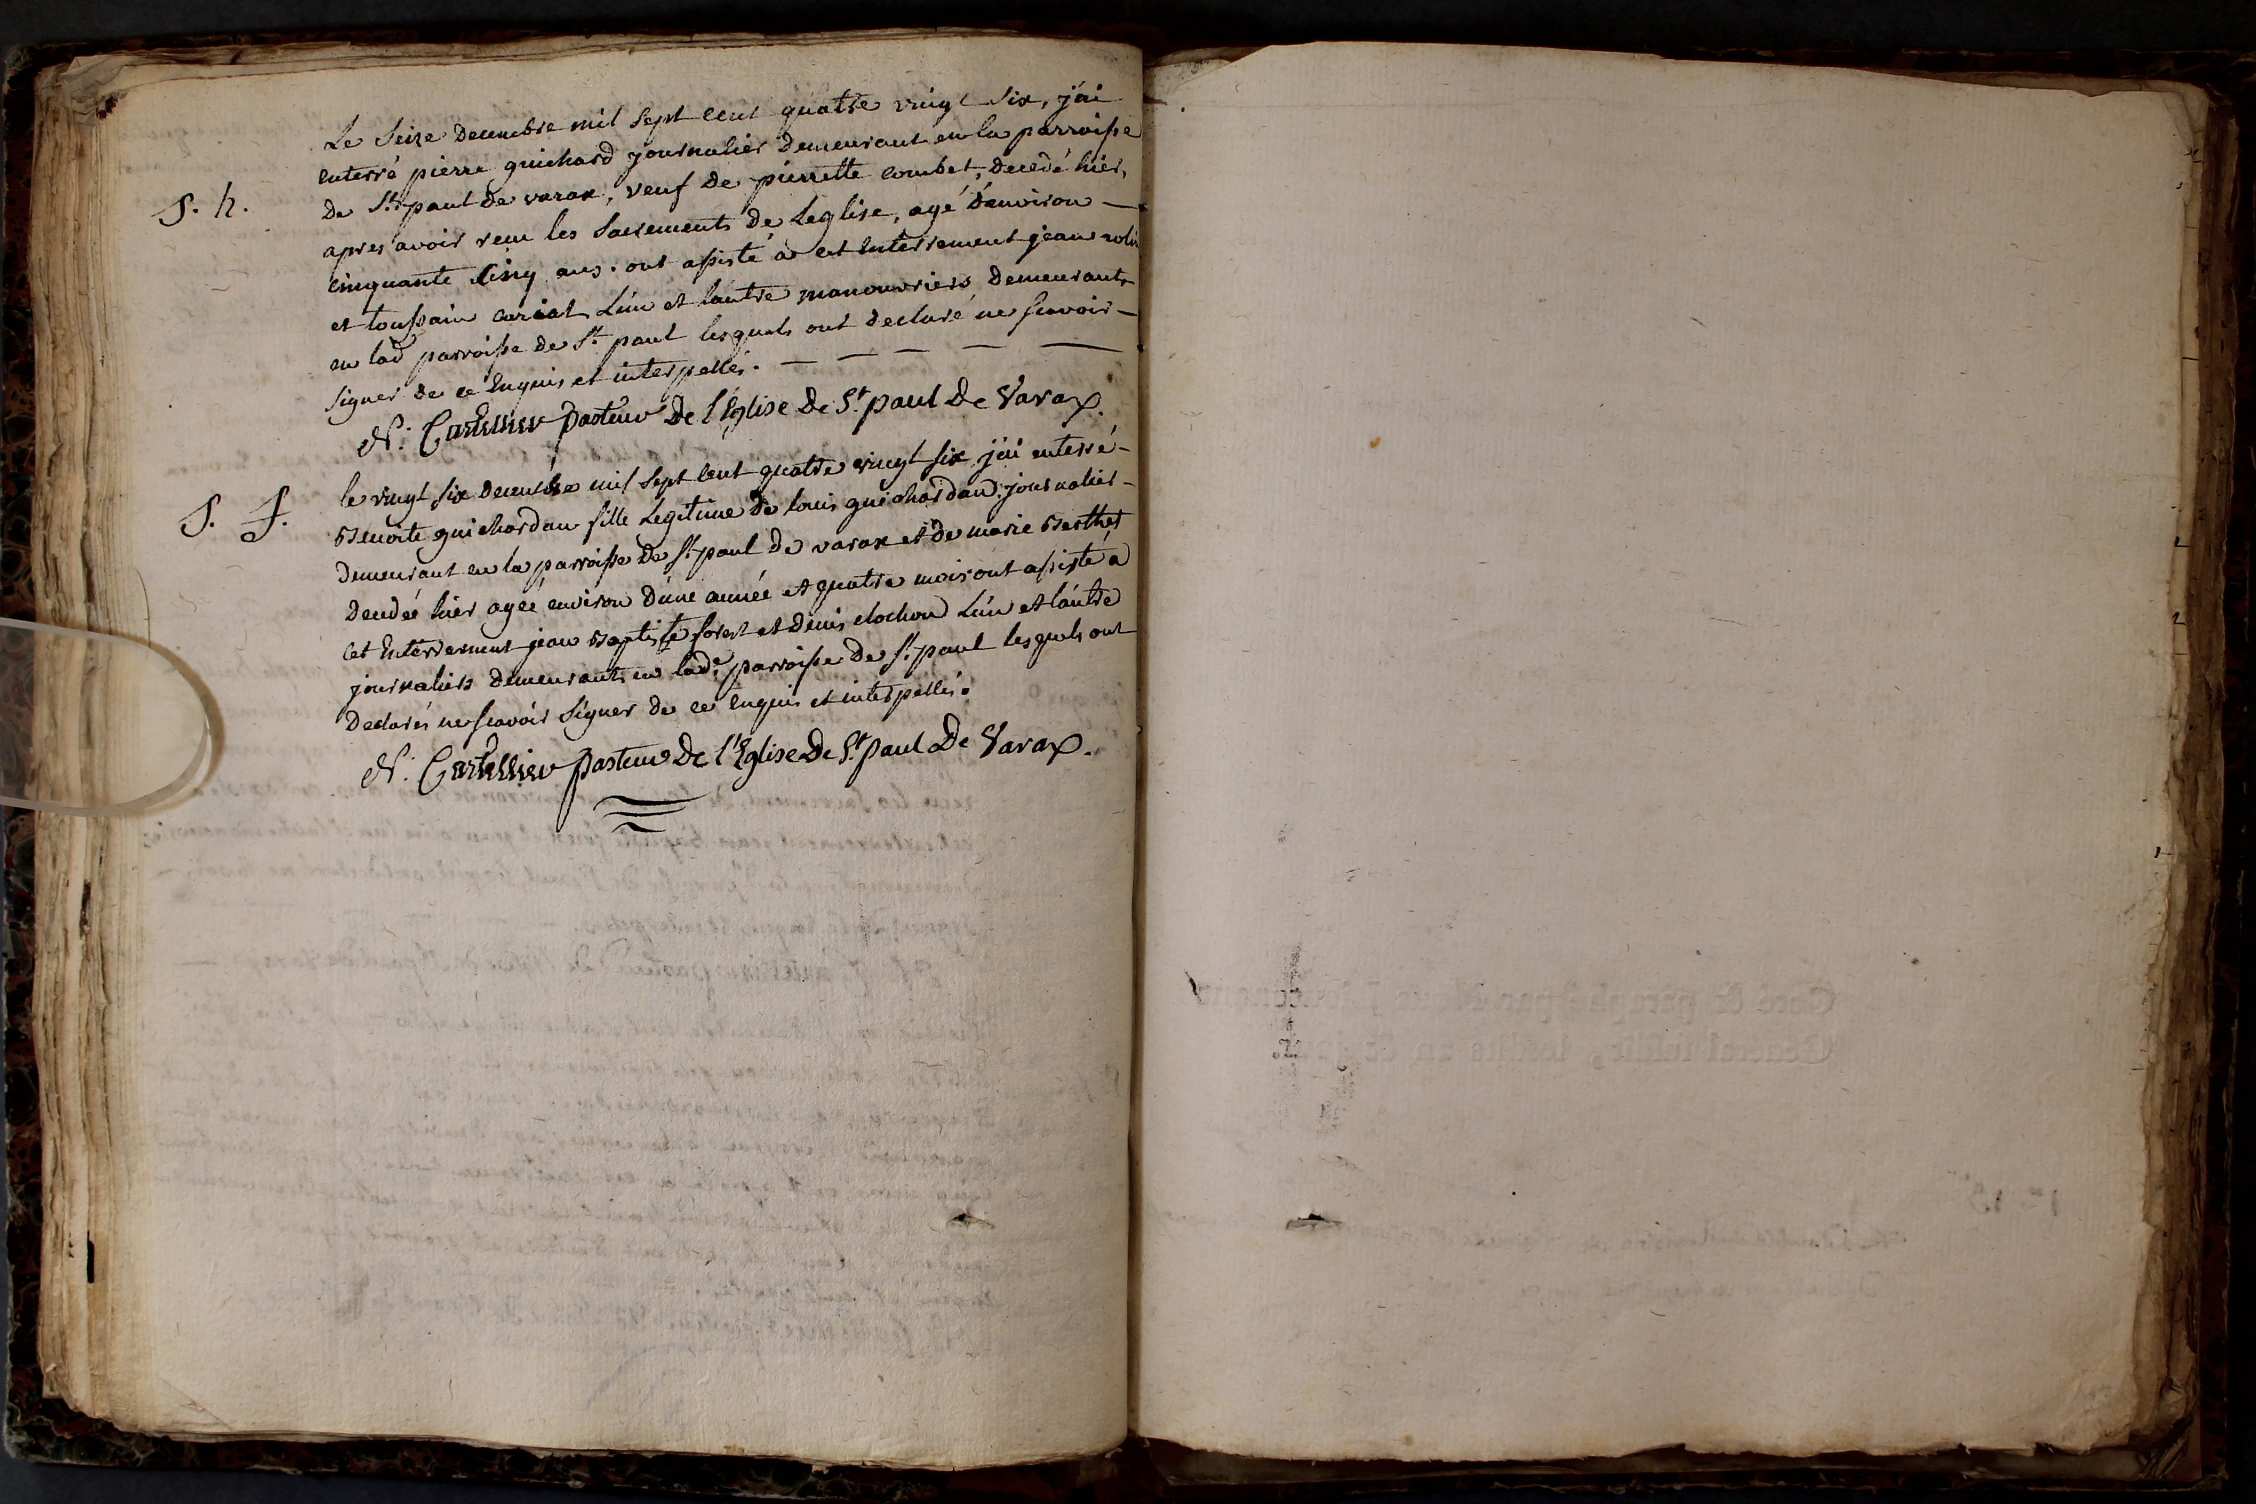 Le Seize decembre mil Sept cent quatre vingt Six, j'ai
enterré pierre guichard journalier demeurant en la parroisse
S. h.
de St. paul de varax, veuf de pierrette combet, decedé hier,
apres avoir recu les Sacrements de Leglise, agé d'environ —
cinquante Cinq ans. ont assisté a cet Enterrement jean rolin
et toussain curiat L'un et lautre manouvriers demeurants
en lad parroisse de St. paul lesquels ont declaré ne scavoir —
signer de ce Enquis et interpellés. —
N. Cartellier pasteur De l'Eglise De St. paul De Varax.
S. f.
le vingt Six decembre mil Sept Cent quatre vingt six j'ai enterré -
Benoite guichardan fille Legitime de louis guichardan journalier -
demeurant en la parroisse de St. paul de varax et de marie Berthet
decedée hier agée environ d'une année et quatre mois ont assisté a
Cet Enterrement jean Baptiste forest et denis clochon L'un et láutre
journaliers demeurants en lade. parroisse de St. paul lesquels ont
declarés ne scavoir Signer de ce Enquis et interpellés.
N. Cartellier pasteur De l'Eglise De St. paul De Varax.